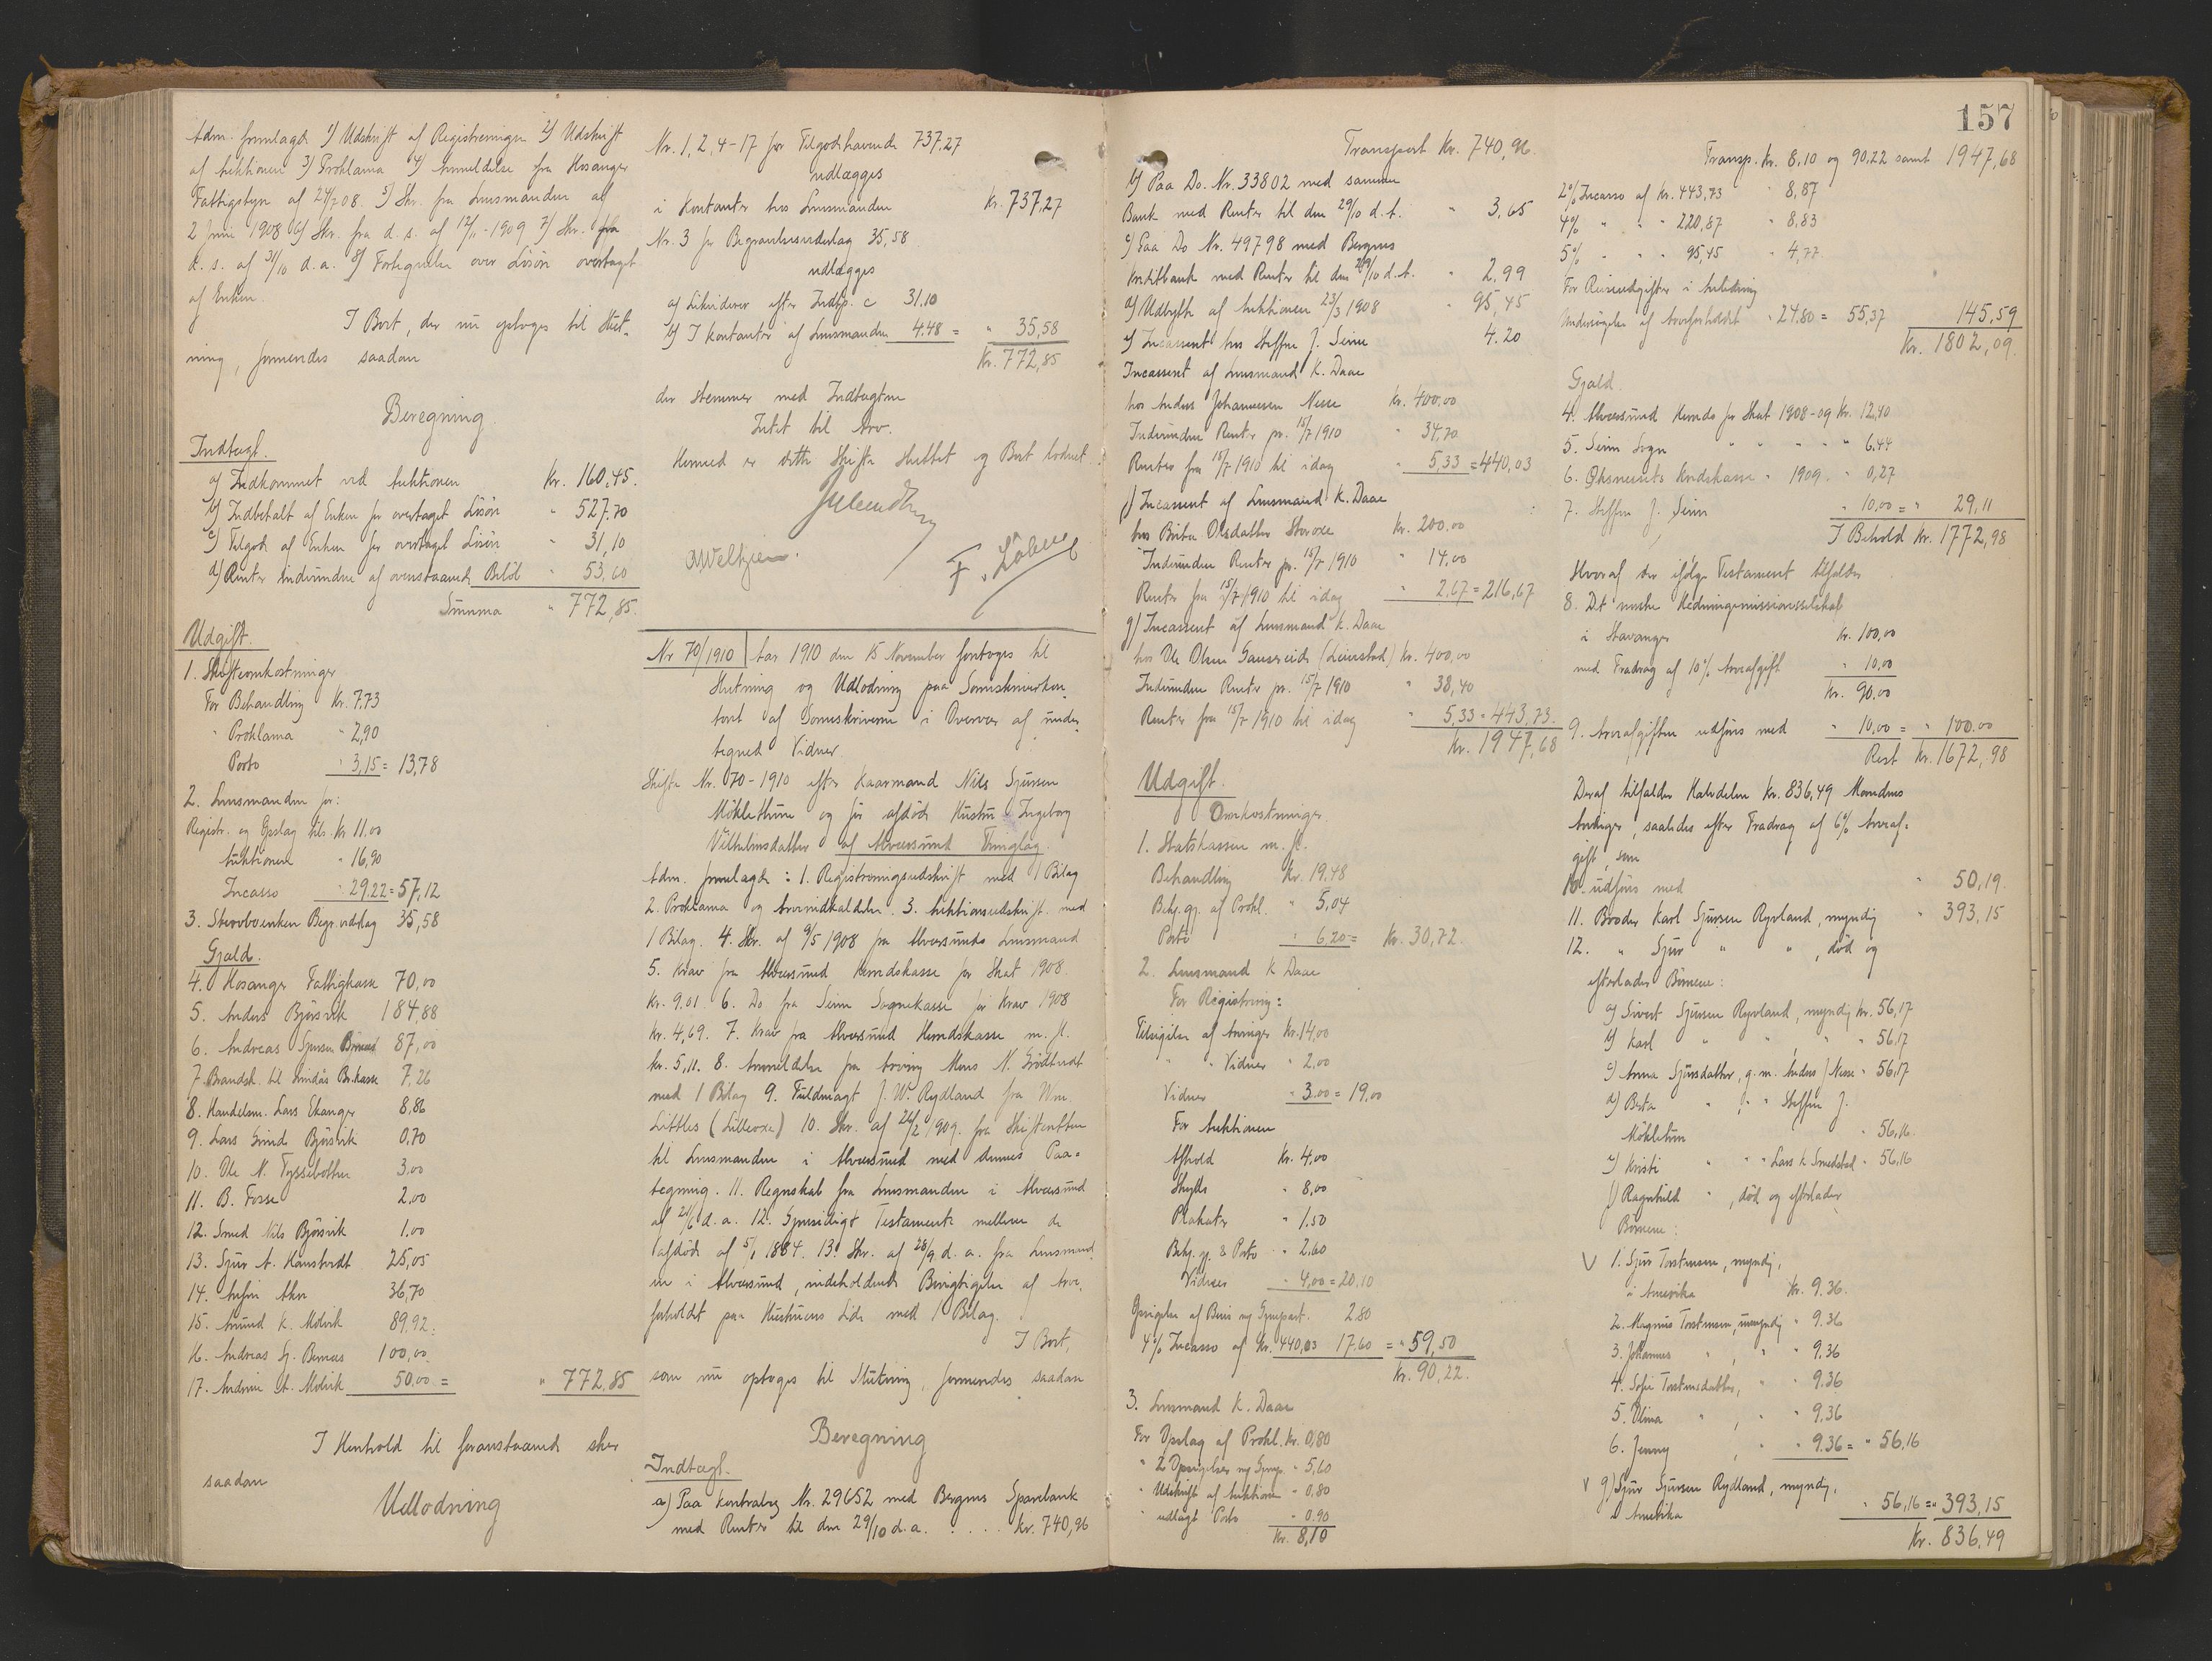 Adm. fremlagde 1) Udskrift af Registreringen 2) Udskrift
af Auktionen 3) Proklama 4) Anmeldelse fra Hosanger
Fattigstyre af 24/7 08. 5) Skr. fra Lensmanden af
2 Juni 1908 6) Skr. fra d. s. af 12/11-1909 7) Skr. fra
d. s. af 31/10 d. a. 8) Fortegnelse over Løsøre overtaget
af Enken.
I Boet, der nu optoges til Slut-
ning, formendes saadan
Beregning
Indtægt.
a) Indkommet ved Auktionen Kr. 160,45.
b) Indbetalt af Enken for overtaget Løsøre " 527,70
c) Tilgode af Enken for overtaget Løsøre " 31,10
d) Renter indvundne af ovenstaaende Beløb " 53,60
Summa " 772,85.
Udgift.
1. Skifteomkostninger
For Behandling Kr. 7,73
" Proklama " 2,90
Porto " 3,15 = 13,78
2. Lensmanden for:
Registr. og Opslag tils. Kr. 11.00
Auktionen " 16,90
Incasso " 29,22 = 57,12
3. Stervboenken Begr.vidtag 35,58
Gjæld.
4. Hosanger Fattigkasse 70,00
5. Anders Bjørsvik 184,88
6. Andreas Sjursen 87,00
7. Brandk. til Lindås Br.kasse 7,26
8. Handelsm. Lars Ekanger 8,86
9. Lars Bjørsvik 0,70
10. Ole N. Tyssebotten 3,00
11. B. Fosse 2,00
12. Smed Nils Bjørsvik 1.00
13. Sjur A. Hanstvedt 25,05
14. 36,70
15. Amund K. Molvik 89.92.
16. Andreas Sj. 100,00.
17. A. Molvik 50.00 = " 772,85
I Henhold til foranstaaende sker
saadan
Udlodning
Nr. 1, 2, 4-17 for Tilgodehavende 737,27
udlægges
i Kontanter hos Lensmanden Kr. 737,27
Nr. 3 for Begravelsesudlæg 35,58
udlægges
a) Likviderer efter Indtp. c 31.10
b) I kontanter af Lensmanden 4.48 = " 35,58
Kr. 772,85
der stemmer med Indtægten
Intet til Arv.
Hermed er dette Skifte sluttet og Boet lodnet.
Nr 70/1910 Aar 1910 den 15 November foretoges til
Slutning og Udlodning paa Sorenskriverkon-
toret af Sorenskriveren i Overvær af under-
tegned Vidner
Skifte Nr. 70-1910 efter Kaarmand Nils Sjursen
Mökletune og før afdöde Hustru Ingeborg
Vilhelmsdatter af Alversund Thinglag.
Adm. fremlagde: 1. Registreringsudskrift med 1 Bilag
2. Proklama og Arveindkaldelse. 3. Auktionsudskrift med
1 Bilag. 4. Skr. af 9/5 1908 fra Alversunds Lensmand
5. Krav fra Alversund Herredskasse for Skat 1908.
Kr. 9.01. 6. Do fra Seim Sognekasse for Krav 1908
Kr. 4,69. 7. Krav fra Alversund Herredskasse m. fl.
Kr. 5,11. 8. Anmeldelse fra Arving Mons N.
med 1 Bilag 9. Fuldmagt J. W. Rydland fra Wm.
Littles (Lilleoxe) 10. Skr. af 26/2 1909. fra Skifteretten
til Lensmanden i Alversund med dennes Paa-
tegning. 11. Regnskab fra Lensmanden i Alversund
af 21/6 d. a. 12. Gjensidigt Testamente mellem de
afdöde af 5/1 1884. 13. Skr. af 28/9 d. a. fra Lensmand
en i Alversund, indeholdende Berigtigelse af Arve-
forholdet paa Hustruens Side med 1 Bilag.
I Boet,
som nu optoges til Slutning, formendes saadan
Beregning
Indtægt.
a) Paa Kontrabog Nr. 29652 med Bergens Sparebank
med Renter til den 29/10 d. a. . . . . Kr. 740,96
157
Transport Kr. 740,96.
b) Paa Do. Nr. 33802 med samme
Bank med Renter til den 29/10 d. A. " 3,65
c) Paa Do Nr. 49798 med Bergens
Kreditbank med Renter til den 29/10 d. A. " 2,99
d) Udbytte af Auktionen 23/3 1908 " 95,45
e) Incasseret hos Steffen J. Seim 4.20
Incasseret af Lensmand K. Daae
hos Anders Johannessen Nesse Kr. 400,00
Indvundne Renter pr. 15/7 1910 " 34,70
Renter fra 15/7 1910 til idag " 5,33 = 440,03
f) Incasseret af Lensmand K. Daae
hos Brita Olsdatter Kr. 200.00
Indvundne Renter pr. 15/7 1910 " 14,00
Renter fra 15/7 1910 til idag " 2,67 = 216,67
g) Incasseret af Lensmand K. Daae
hos Ole Olsen Kr. 400,00
Indvundne Renter pr. 15/7 1910 " 38,40
Renter fra 15/7 1910 til idag " 5,33 " 443,73.
Kr. 1947,68
Udgift.
Omkostninger
1. Statskassen m. fl.
Behandling Kr. 19.48
Bekj.gj. af Prokl. " 5,04
Porto " 6,20 = Kr. 30,72.
2. Lensmand K Daae
For Registrering:
Tilsigelse af Arvinger Kr. 14,00
" " Vidner " 2,00
Vidner " 3.00 = 19,00
For Auktionen
Afhold Kr. 4,00
Skyds " 8,00
Plakater " 1.50
Bekj. gj. & Porto " 2,60
Vidner " 4,00 = 20,10
2.80
4% Incasso af Kr. 440,03 17.60 = " 59,50
Kr. 90,22.
3. Lensmand K. Daae
For Opslag af Prokl. Kr. 0,80
" 2 Opsigelser " 5,60
" Udskrift af Auktionen " 0,80
" udlagt Porto " 0.90
Kr. 8,10
Transp. Kr. 8,10 og 90,22 samt 1947,68
2% Incasso af Kr. 443,73 " 8,87
4% " " " 220,87 " 8,83
5% " " " 95,45 " 4,77
For Reiseudgifter i Anledning
Undersögelse af Arveforholdet " 24.80 = 55,37 145,59
Kr. 1802,09.
Gjæld.
4. Alversund Herreds for Skat 1908-09 Kr. 12,40
5. Seim Sogn " " " " " 6.44
6. Kredskasse " 1909. " 0,27
7. Steffen J. Seim " 10,00 = " 29,11
I Behold Kr. 1772,98
Hvoraf der ifölge Testament tilfalder
8. Det norske Hedningemissionsselskab
i Stavanger Kr. 100,00
med Fradrag af 10% Arveafgift " 10,00
Kr. 90.00
9. Arveafgiften udföres med " 10,00 = " 100.00
Rest Kr. 1672,98
Deraf tilfalder Halvdelen Kr. 836,49 Mandens
Arvinger, saaledes efter Fradrag af 6% Arveaf-
gift, som
10. udföres med " 50,19.
11. Broder Karl Sjursen Ryvland, myndig " 393,15
12. " Sjur " " , död og
efterlader Börnene:
a) Sivert Sjursen Ryvland, myndig Kr. 56,17
b) Karl " " , " " 56.17
c) Anna Sjursdatter, g. m. Anders J Nesse " 56,17
d) Berta " , " " Steffen J.
Mökletun " 56,16.
e) Kristi " " " Lars K. Smedstad " 56,16
f) Ragnhild " , död og efterlader
Börnene:
V 1. Sjur Torstensen, myndig,
i Amerika Kr. 9.36.
2. Magnus Torstensen, umyndig " 9.36
3. Johannes " , " " 9.36
4. Sofie Torstensdatter, " " 9.36
5. Olina " , " " 9,36
6. Jenny " , " " 9.36 = " 56,16
V g) Sjur Sjursen Rydland, myndig,
i Amerika " 56,16 = " 393,15
Kr. 836,49